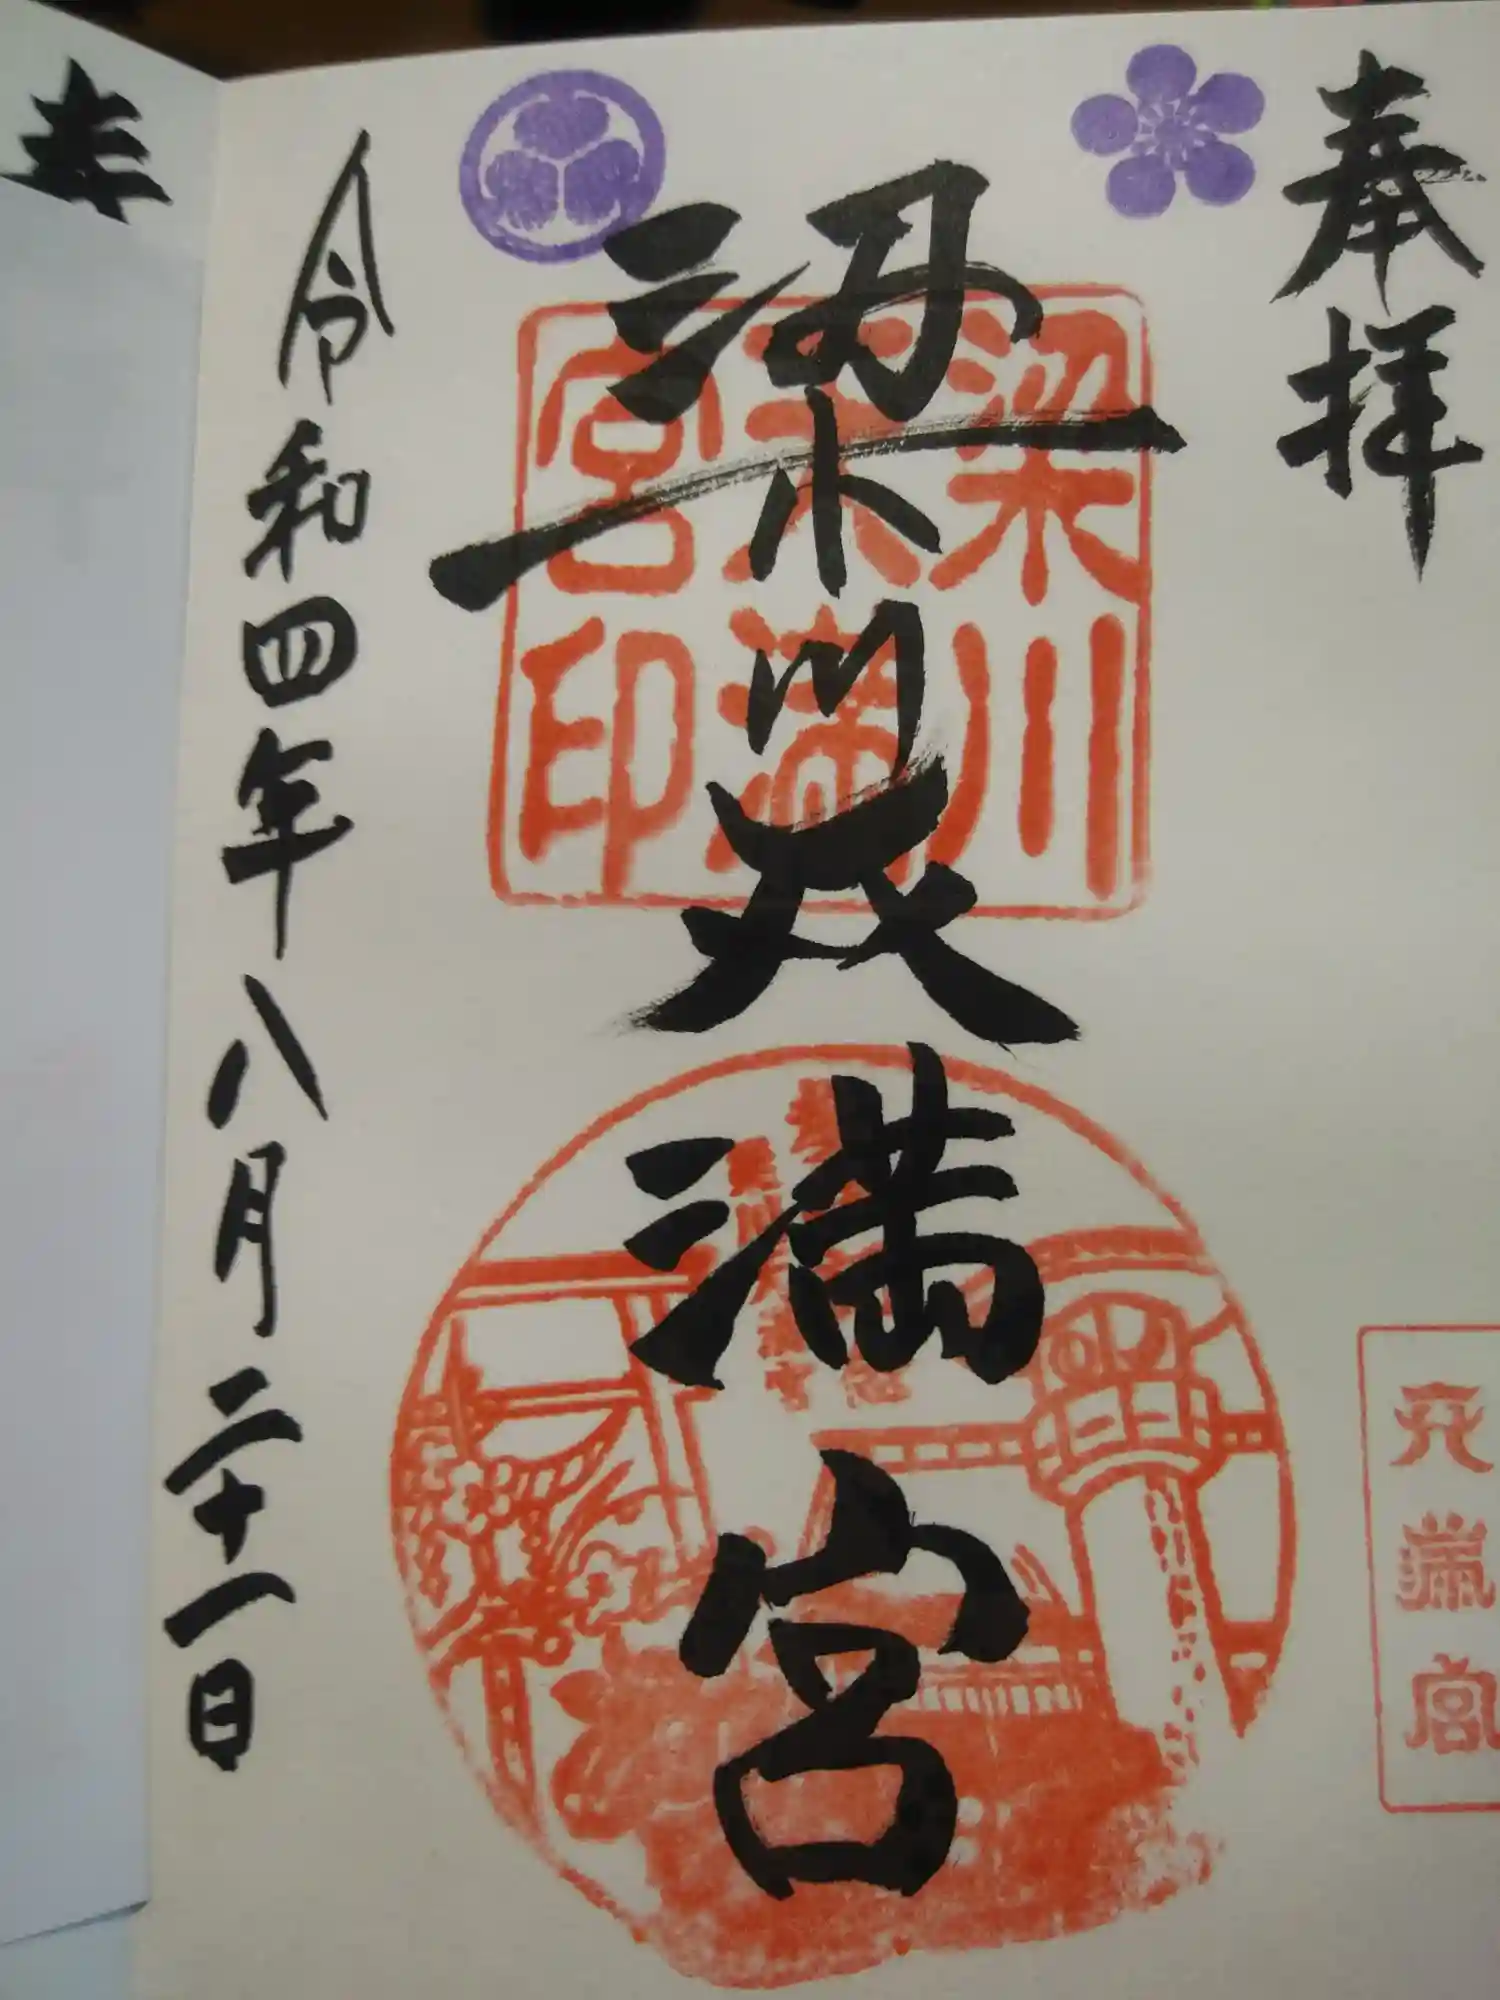 奉拝
梁川天満宮
梁川
天満
宮印
天満宮
令和四年八月二十一日